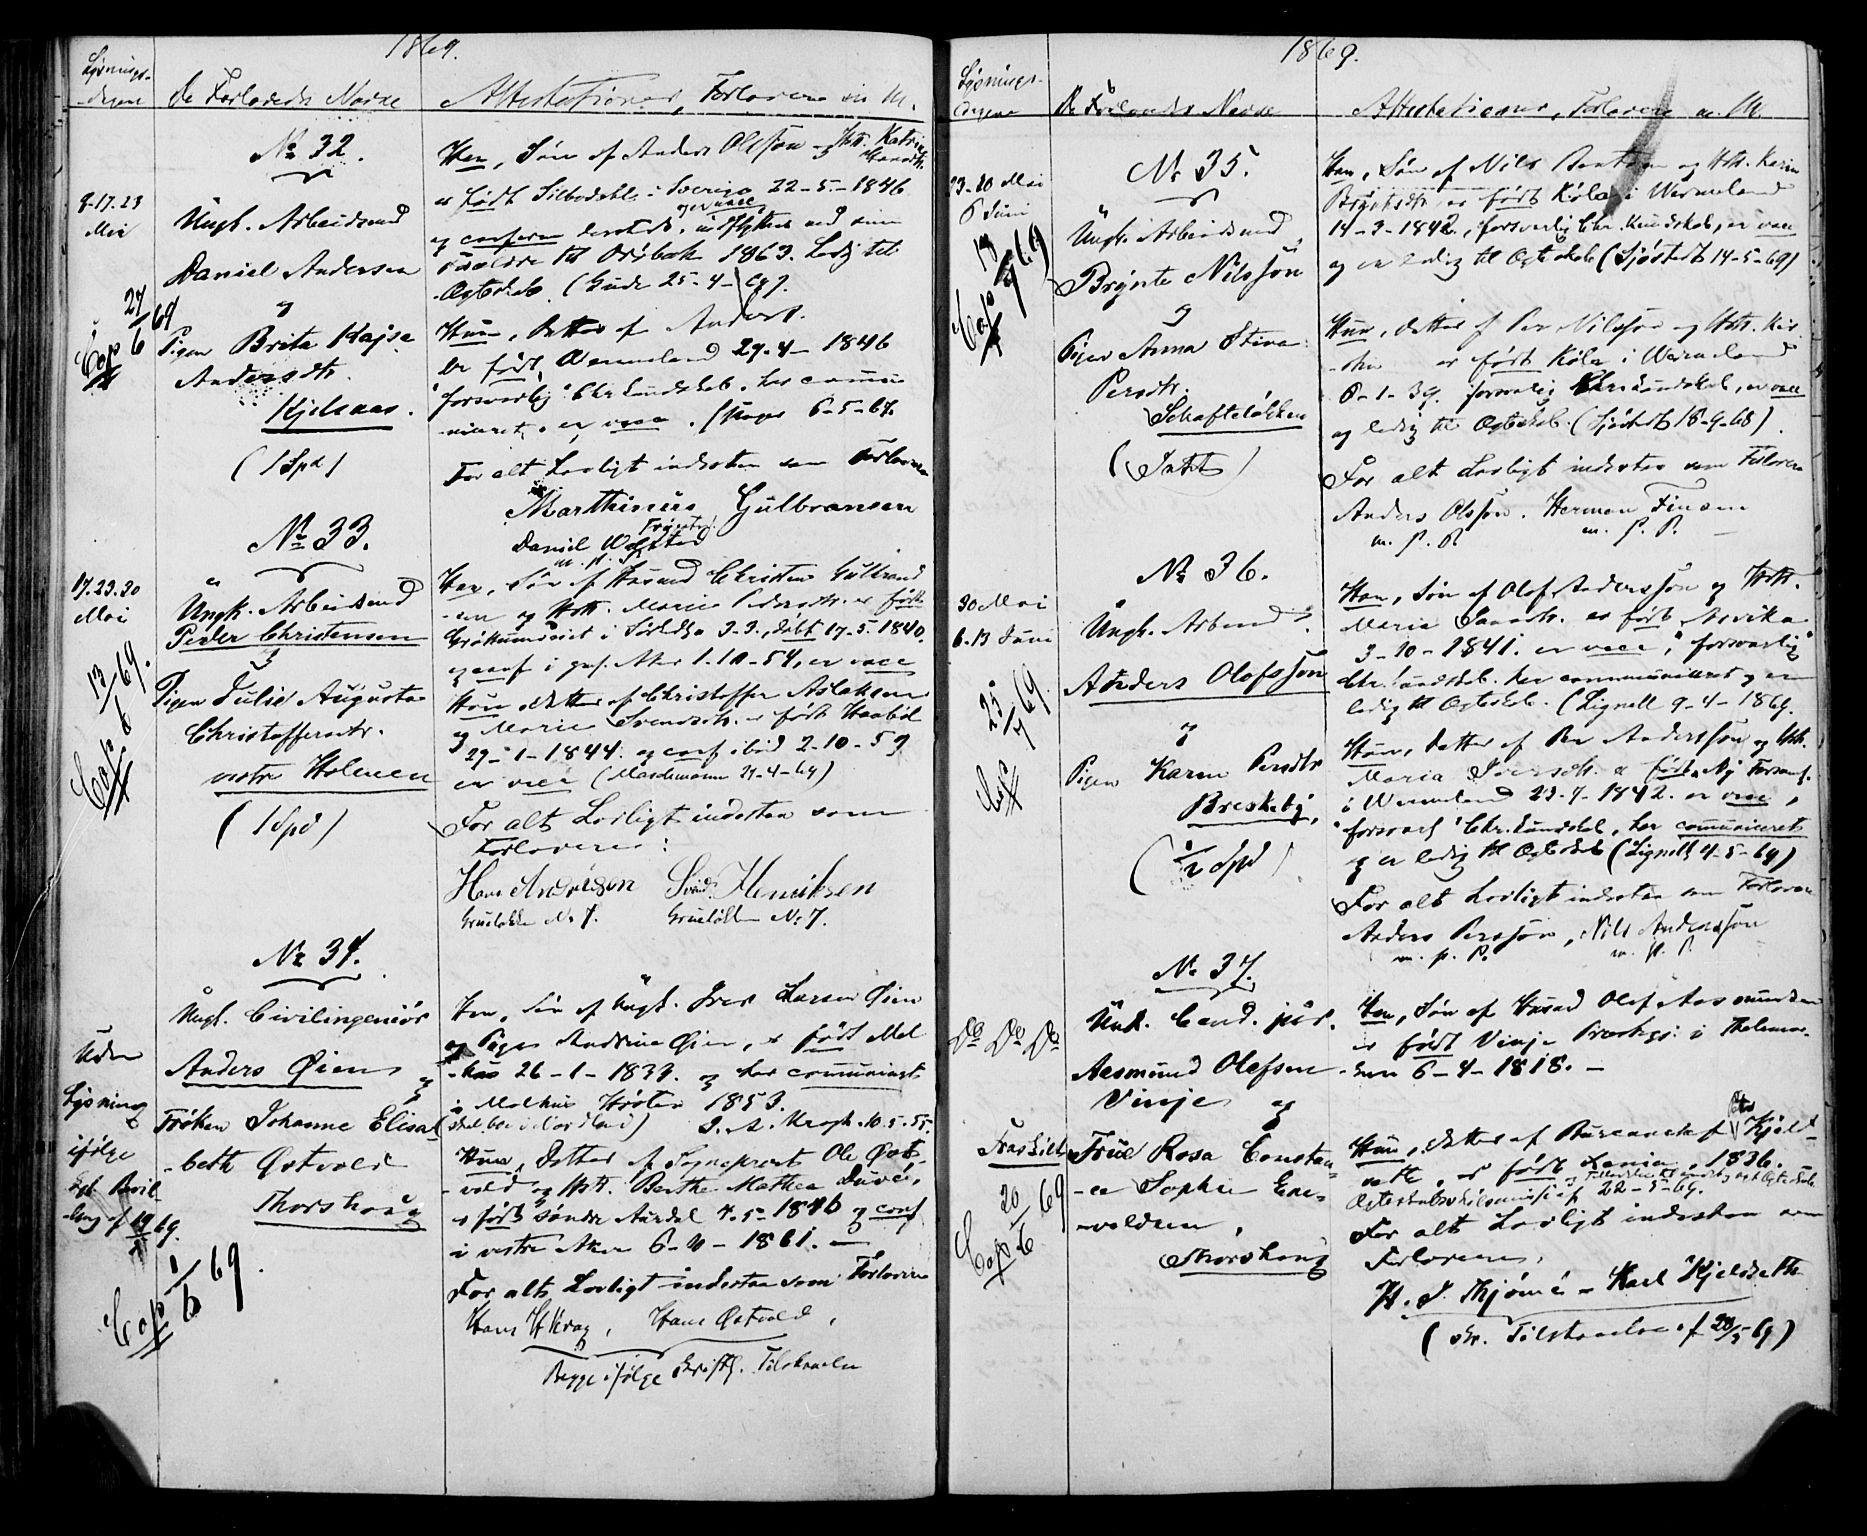 1869.
Lysnings-
dagene
De Forlovedes Navne
Attestationer, Forlovere m. M.
No 32.
9-17.23
Mai
Ungk. Arbeidsmd
Daniel Andersen
og
Pigen Brita Kajsa
Andersdtr.
Kjelsaas.
(1 Spd)
Cop 27/6 69
Han, Søn af Anders Olsson og Hst. Katrin
er født Silbodahl i Sverige 22-5-1846
og er vacc
og confirm
Forældre til Ørebak 1863. Ledig til
Ægteskab. (Gude 25-4-69).
Hun, Datter af Anders
er født, Wermeland 29-4-1846
"forsvarlig" Chr. Kundskab. har commu-
niceret, er vacc. 6-5-67.
For alt Lovligt indestaa som Forlovere
Marthinius Gulbransen
Daniel
m. p. P.
No 33.
17.23.30
Mai
Ungk. Arbeidsmd
Peder Christensen
og
Pigen Julie Augusta
Christoffersdtr.
vestre Holmen
(1 Spd)
Cop 13/6 69.
Han, Søn af Husmd Christen Gulbrand-
sen og Hst. Marie Pedersdtr. er født
3-3., døbt 17-5-1840.
og conf i gml. Aker 1-10-54, er vacc
Hun Datter af Christoffer Aslaksen
og Marie Svendsdtr. er født Haabøl
29-1-1844. og conf ibid 2-10-59
er vacc (21-4-69)
For alt Lovligt indestaa som
Forlovere:
Hans Andersen Svend Henriksen
Grueløkke No 7. Grueløkke No 7.
No 34.
Uden
Lysning
ifølge
kgl. Bevil-
ling af 69.
Ungk. Civilingeniør
Anders Øien og
Frøken Johanne Elisa-
beth Østvold
Thorshoug
Cop 1/6 69.
Han, Søn af Ungk. Iver Larsen Øien
og Pigen Andrine Øien, er født Mel-
huus 26-1-1834. og har communiceret
i Melhus Høsten 1853.
I. A. Krogh. 10.5.55.
Hun, Datter af Sogneprest Ole Øst-
vold og Hst. Berthe Mathea Duué,
er født søndre Aurdal 4-5-1846 og conf
i vestre Aker 6- -1861.
For alt Lovligt indestaa som Forlovere
Hans H Krag, Hans Østvold,
Begge ifølge Skriftl. Tilstaaelse
1869.
Lysnings-
dagene
De Forlovedes Navne
Attestationer, Forlovere m. M.
No 35.
23-30 Mai
6 Juni
Ungk. Arbeidsmd
Brynte Nilsson
og
Pigen Anna Stina
Persdtr.
Schafteløkken
(Intet)
Cop 13/7 69
Han, Søn af Nils Bentson og Hst. Karin
Bryntesdtr er født Køla i Wermeland
14-3-1842, forsvarlig Chr. Kundskab, er vacc
og er ledig til Ægteskab (Sjöstedt 14-5-69)
Hun, datter af Per Nilsson og Hst. Kir-
stin er født Køla i Wermeland
8-1-39. forsvarlig Chr. Kundskab, er vacc
og ledig til Ægteskab. (Sjöstedt 18-9-68).
For alt Lovligt indestaa som Forlovere
Anders Olsson. Herman Finsen
m. p. P. m. p. P.
No 36.
30 Mai
6-13 Juni
Ungk. Arbmd
Anders Olofsson
og
Pigen Karin Persdtr
Breskeby,
(1/2 Spd)
Cop 25/7 69.
Han, Søn af Olof Andersson og Hst.
Maria er født Arvika
3-10-1841. er vacc, "forsvarlig"
Chr. Kundskab. har communiceret og er
ledig til Ægteskab. (Lignell 9-4-1869.
Hun, datter af Per Andersson og Hst.
Maria Iversdtr. er født Ny Forsaml.
i Wermeland 23-7-1842. er vacc,
"forsvarl" Chr. Kundskab, har communiceret
og er ledig til Ægteskab (Lignell 4-5-69)
For alt Lovligt indestaa som Forlovere
Anders Persson, Nils Andersson
m. p. P. m. p. P.
No 37.
Do Do Do
Ungk. Cand. jur.
Aasmund Olafsen
Vinje og
Fraskilt
Frue Rosa Constan-
ce Sophie Ene-
voldsen,
Thorshoug
Cop 20/6 69
Han, Søn af Husmd Olaf Aasmundsen
er født Vinje Prestegj: i Thelemar-
ken 6-4-1818.
Hun, Datter af Bureauchef Kjeld-
seth, er født Xania, 1836.
22-5-69.
For alt Lovligt indestaa som
Forlovere,
H. J. Thjømé - Karl Kjeldseth
(skr. Tilstaaelse af 28/5 69)